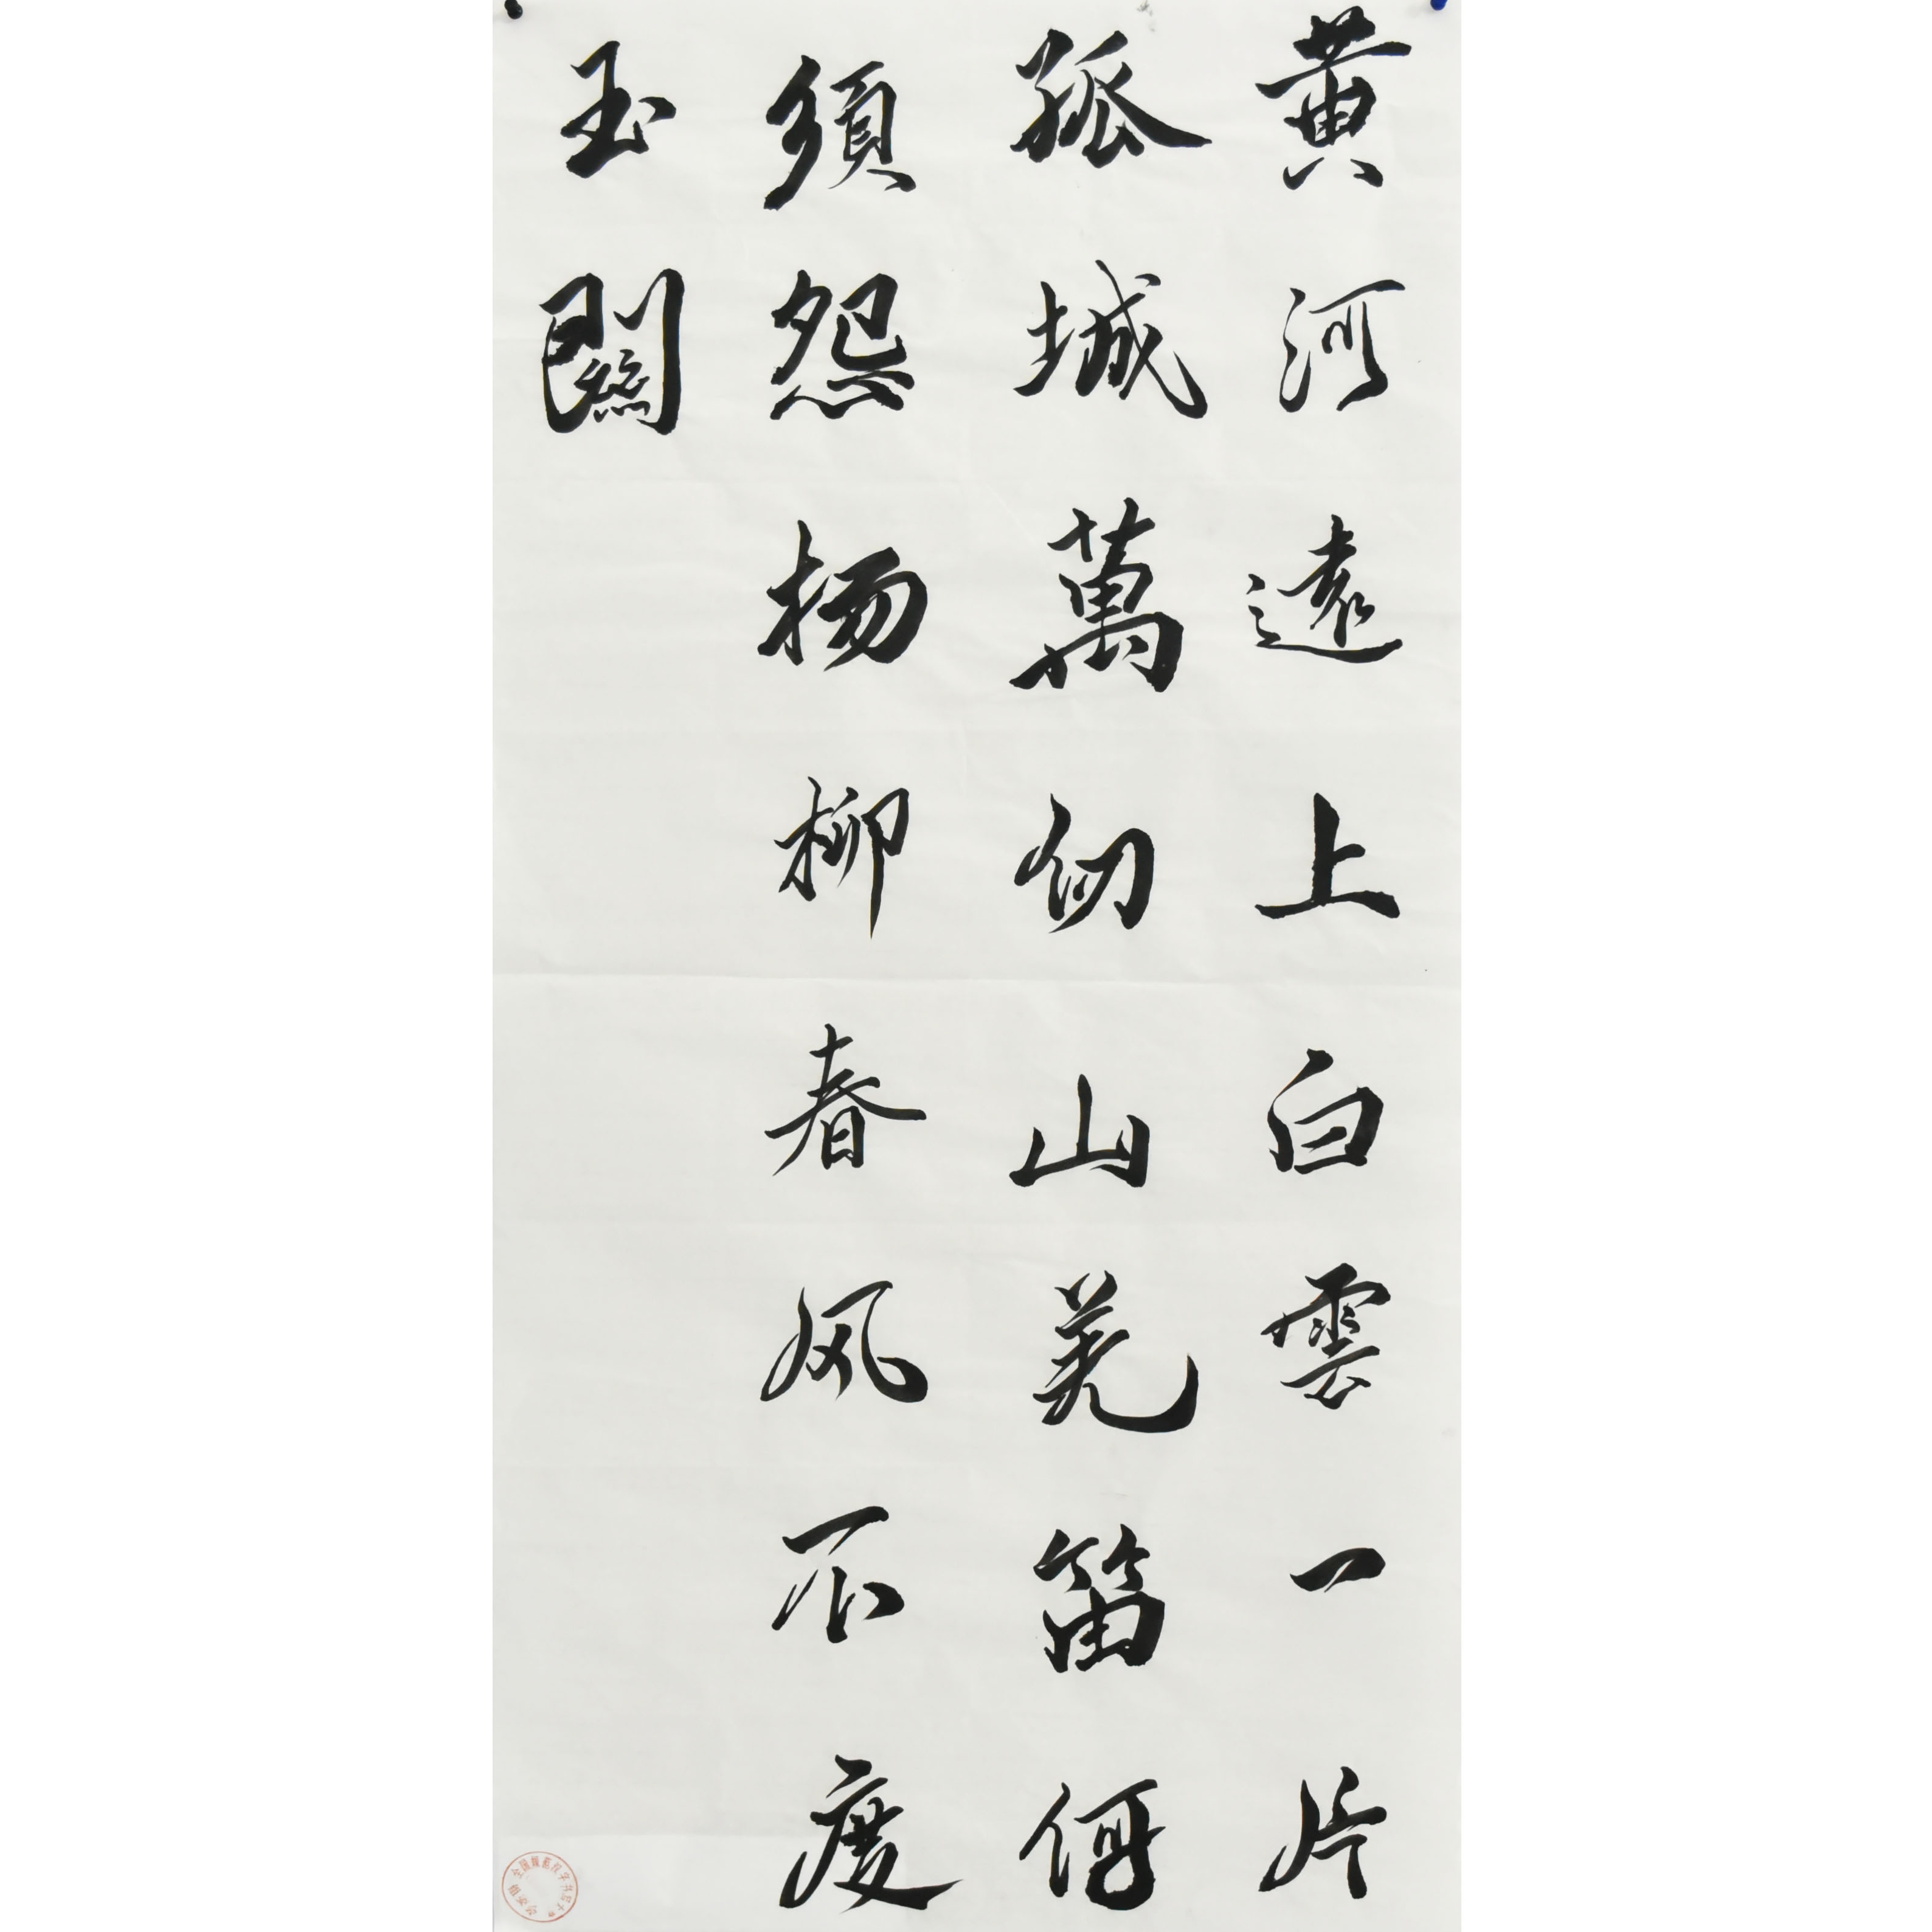 黄河遠上白雲一片
孤城萬仞山羌笛何
須怨楊柳春風不度
玉關